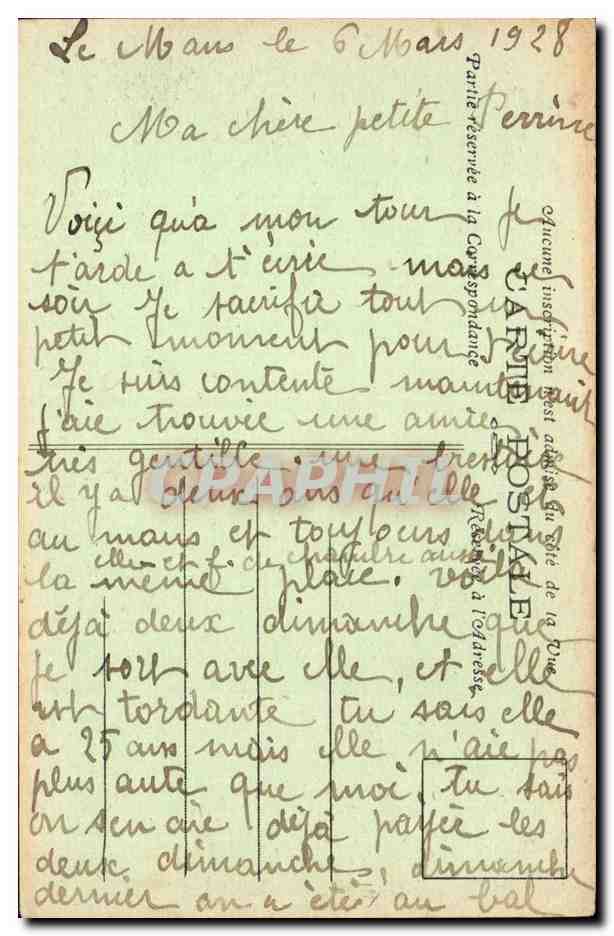 Le Mans le 6 Mars 1928
Ma chère petite Perrine
Voiçi qu'a mon tour Je
tarde a t'écrie mais ce
soir Je sacrifie tout un
petit momment pour t'écrire
Je suis contente maintenant
J'aie trouvée une amie
très gentille. une
il y a deux ans qu'elle est
au mans et toujours dans
elle est f. de chambre aussi
la même place. voilà
déjà deux dimanche que
Je sort avec elle, et elle
est tordante tu sais elle
a 25 ans mais elle n'aie pas
plus aute que moi, tu sais
on sen aie déjà payée les
deux dimanche, dimanche
dernier on a été au bal
CARTE POSTALE
Aucune inscription n'est admise du côté de la Vue
Partie réservée à la Correspondance
Réservée à l'Adresse
CPAPHIL